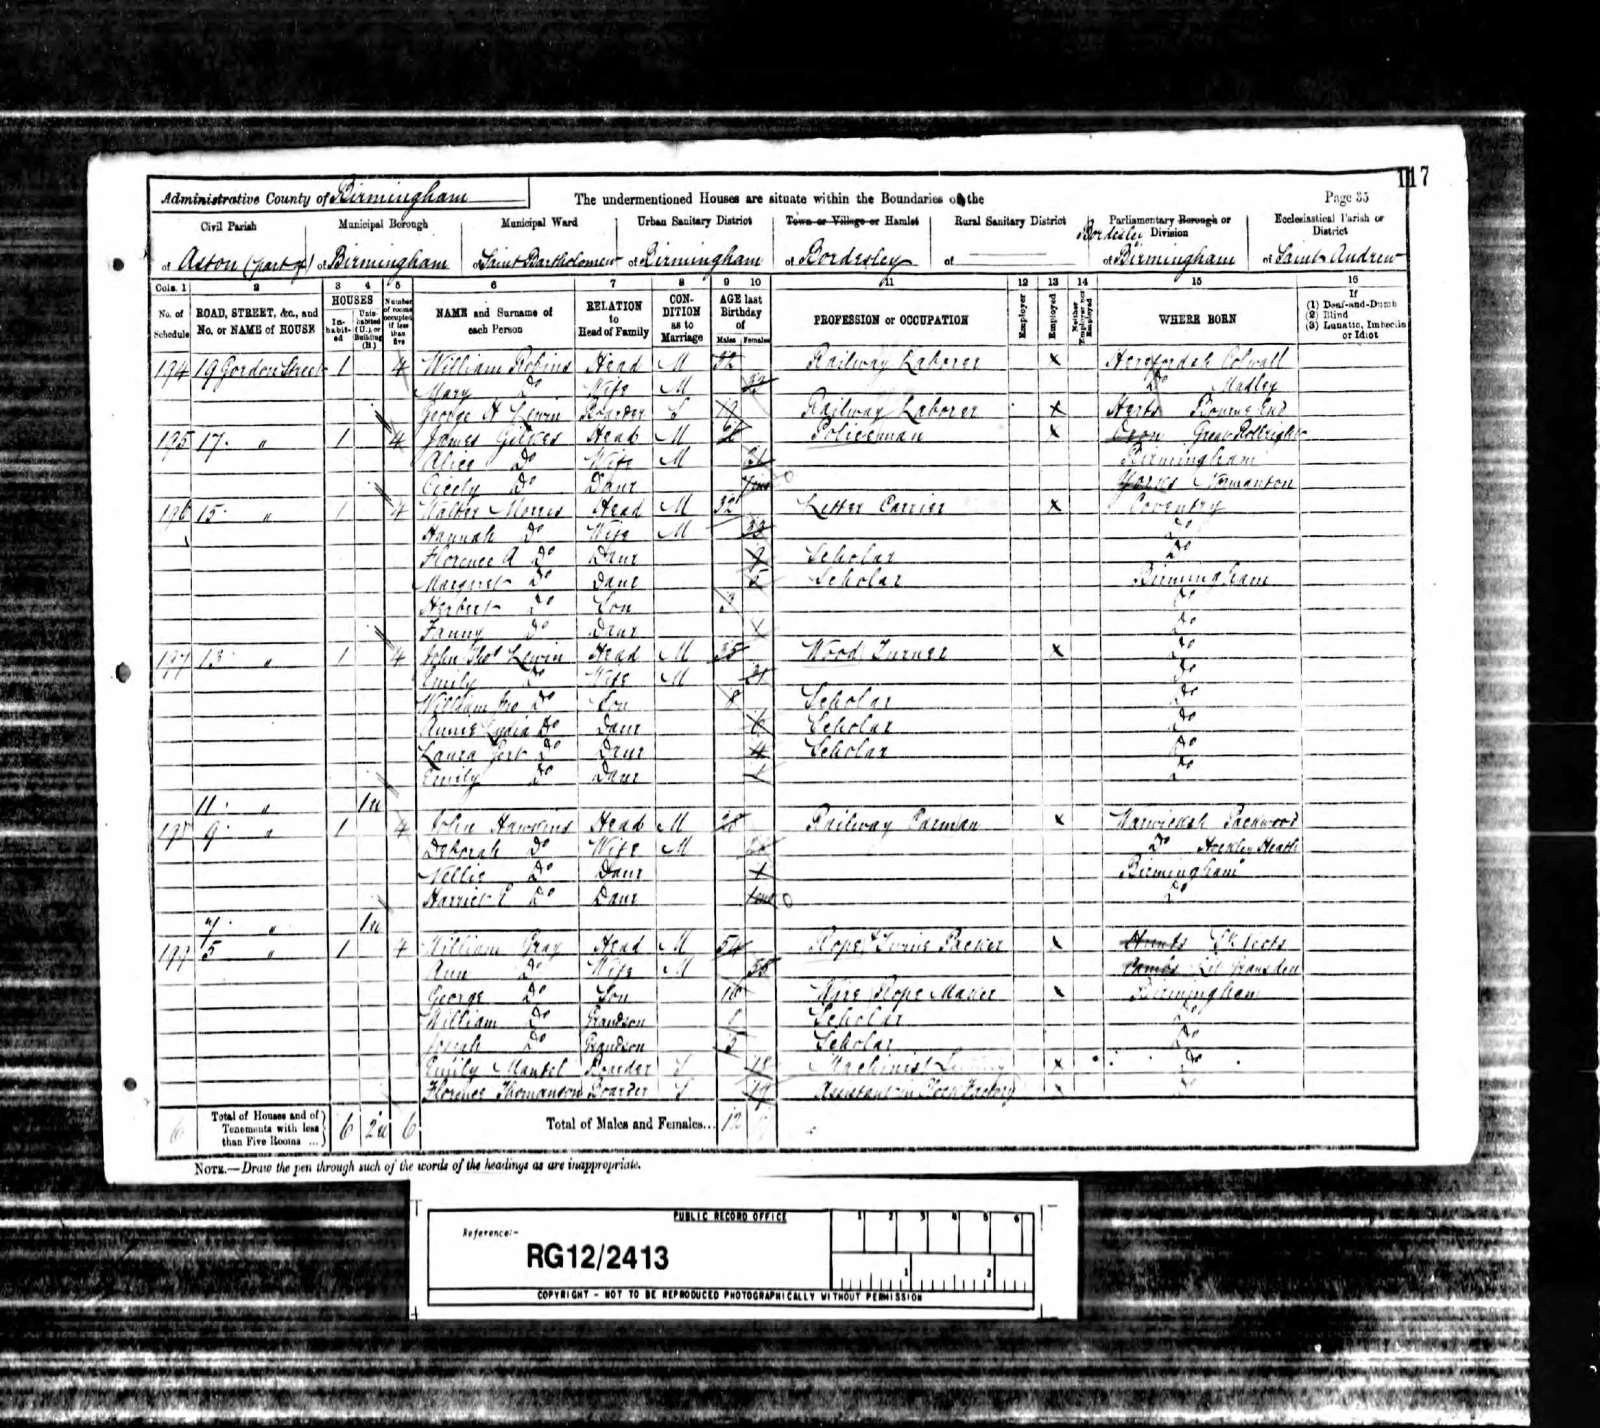 117
Administrative County of Birmingham The undermentioned Houses are situate within the Boundaries of the Page 35
Civil Parish Municipal Borough Municipal Ward Urban Sanitary District Town or Village or Hamlet Rural Sanitary District Parliamentary Borough or Division Ecclesiastical Parish or District
of Aston (part of) of Birmingham of Saint Bartholomew of Birmingham of Bordesley of of Bordesley Birmingham of Saint Andrew
Cols. 1 2 3 4 5 6 7 8 9 10 11 12 13 14 15 16
No. of Schedule ROAD, STREET, &c., and No. or NAME of HOUSE HOUSES Inhabited Uninhabited (U.), or Building (B.) Number of rooms occupied if less than five NAME and Surname of each Person RELATION to Head of Family CONDITION as to Marriage AGE last Birthday of Males Females PROFESSION or OCCUPATION Employer Employed Neither Employer nor Employed WHERE BORN If (1) Deaf-and-Dumb (2) Blind (3) Lunatic, Imbecile or Idiot
194 19 Gordon Street 1 4 William Robins Head M 32 Railway Laborer x Herefordsh Colwall
Mary Do Wife M Do Madley
George H Lewin Boarder S 19 Railway Laborer x Herts Bourne End
195 17 " 1 4 James Gilkes Head M Policeman x Oxon Great Rollright
Alice Do Wife M 31 Birmingham
Cicely Do Daur Yorks Normanton
196 15 " 1 4 Walter Morris Head M 32 Letter Carrier x Coventry
Hannah Do Wife M 33 Do
Florence A Do Daur 9 Scholar Do
Margaret Do Daur 5 Scholar Birmingham
Herbert Do Son 3 Do
Fanny Do Daur Do
197 13 " 1 4 John Thos Lewin Head M 35 Wood Turner x Do
Emily Do Wife M 31 Do
William Geo Do Son 8 Scholar Do
Annie Lydia Do Daur 6 Scholar Do
Laura Gert Do Daur 4 Scholar Do
Emily Do Daur 1 Do
11 " 1u
198 9 " 1 4 John Hawkins Head M 28 Railway Carman x Warwicksh Packwood
Deborah Do Wife M Do Hockley Heath
Nellie Do Daur 1 Birmingham
Harriet E Do Daur Do
7 " 1u
199 5 " 1 4 William Gray Head M 54 Rope & Twine Packer x Hunts St Neots
Ann Do Wife M 55 Cambs Lit Gransden
George Do Son 16 Wire Rope Maker x Birmingham
William Do Grandson Scholar Do
Josiah Do Grandson 5 Scholar Do
Emily Mantel Boarder S 18 Machinist x Do
Florence Thomanson Boarder S 19 Assistant in Factory x Do
6 Total of Houses and of Tenements with less than Five Rooms ... 6 2u 6 Total of Males and Females... 12
NOTE.—Draw the pen through such of the words of the headings as are inappropriate.
PUBLIC RECORD OFFICE
Reference:-
RG12/2413
1 2 3 4 5 6
1 2
COPYRIGHT - NOT TO BE REPRODUCED PHOTOGRAPHICALLY WITHOUT PERMISSION